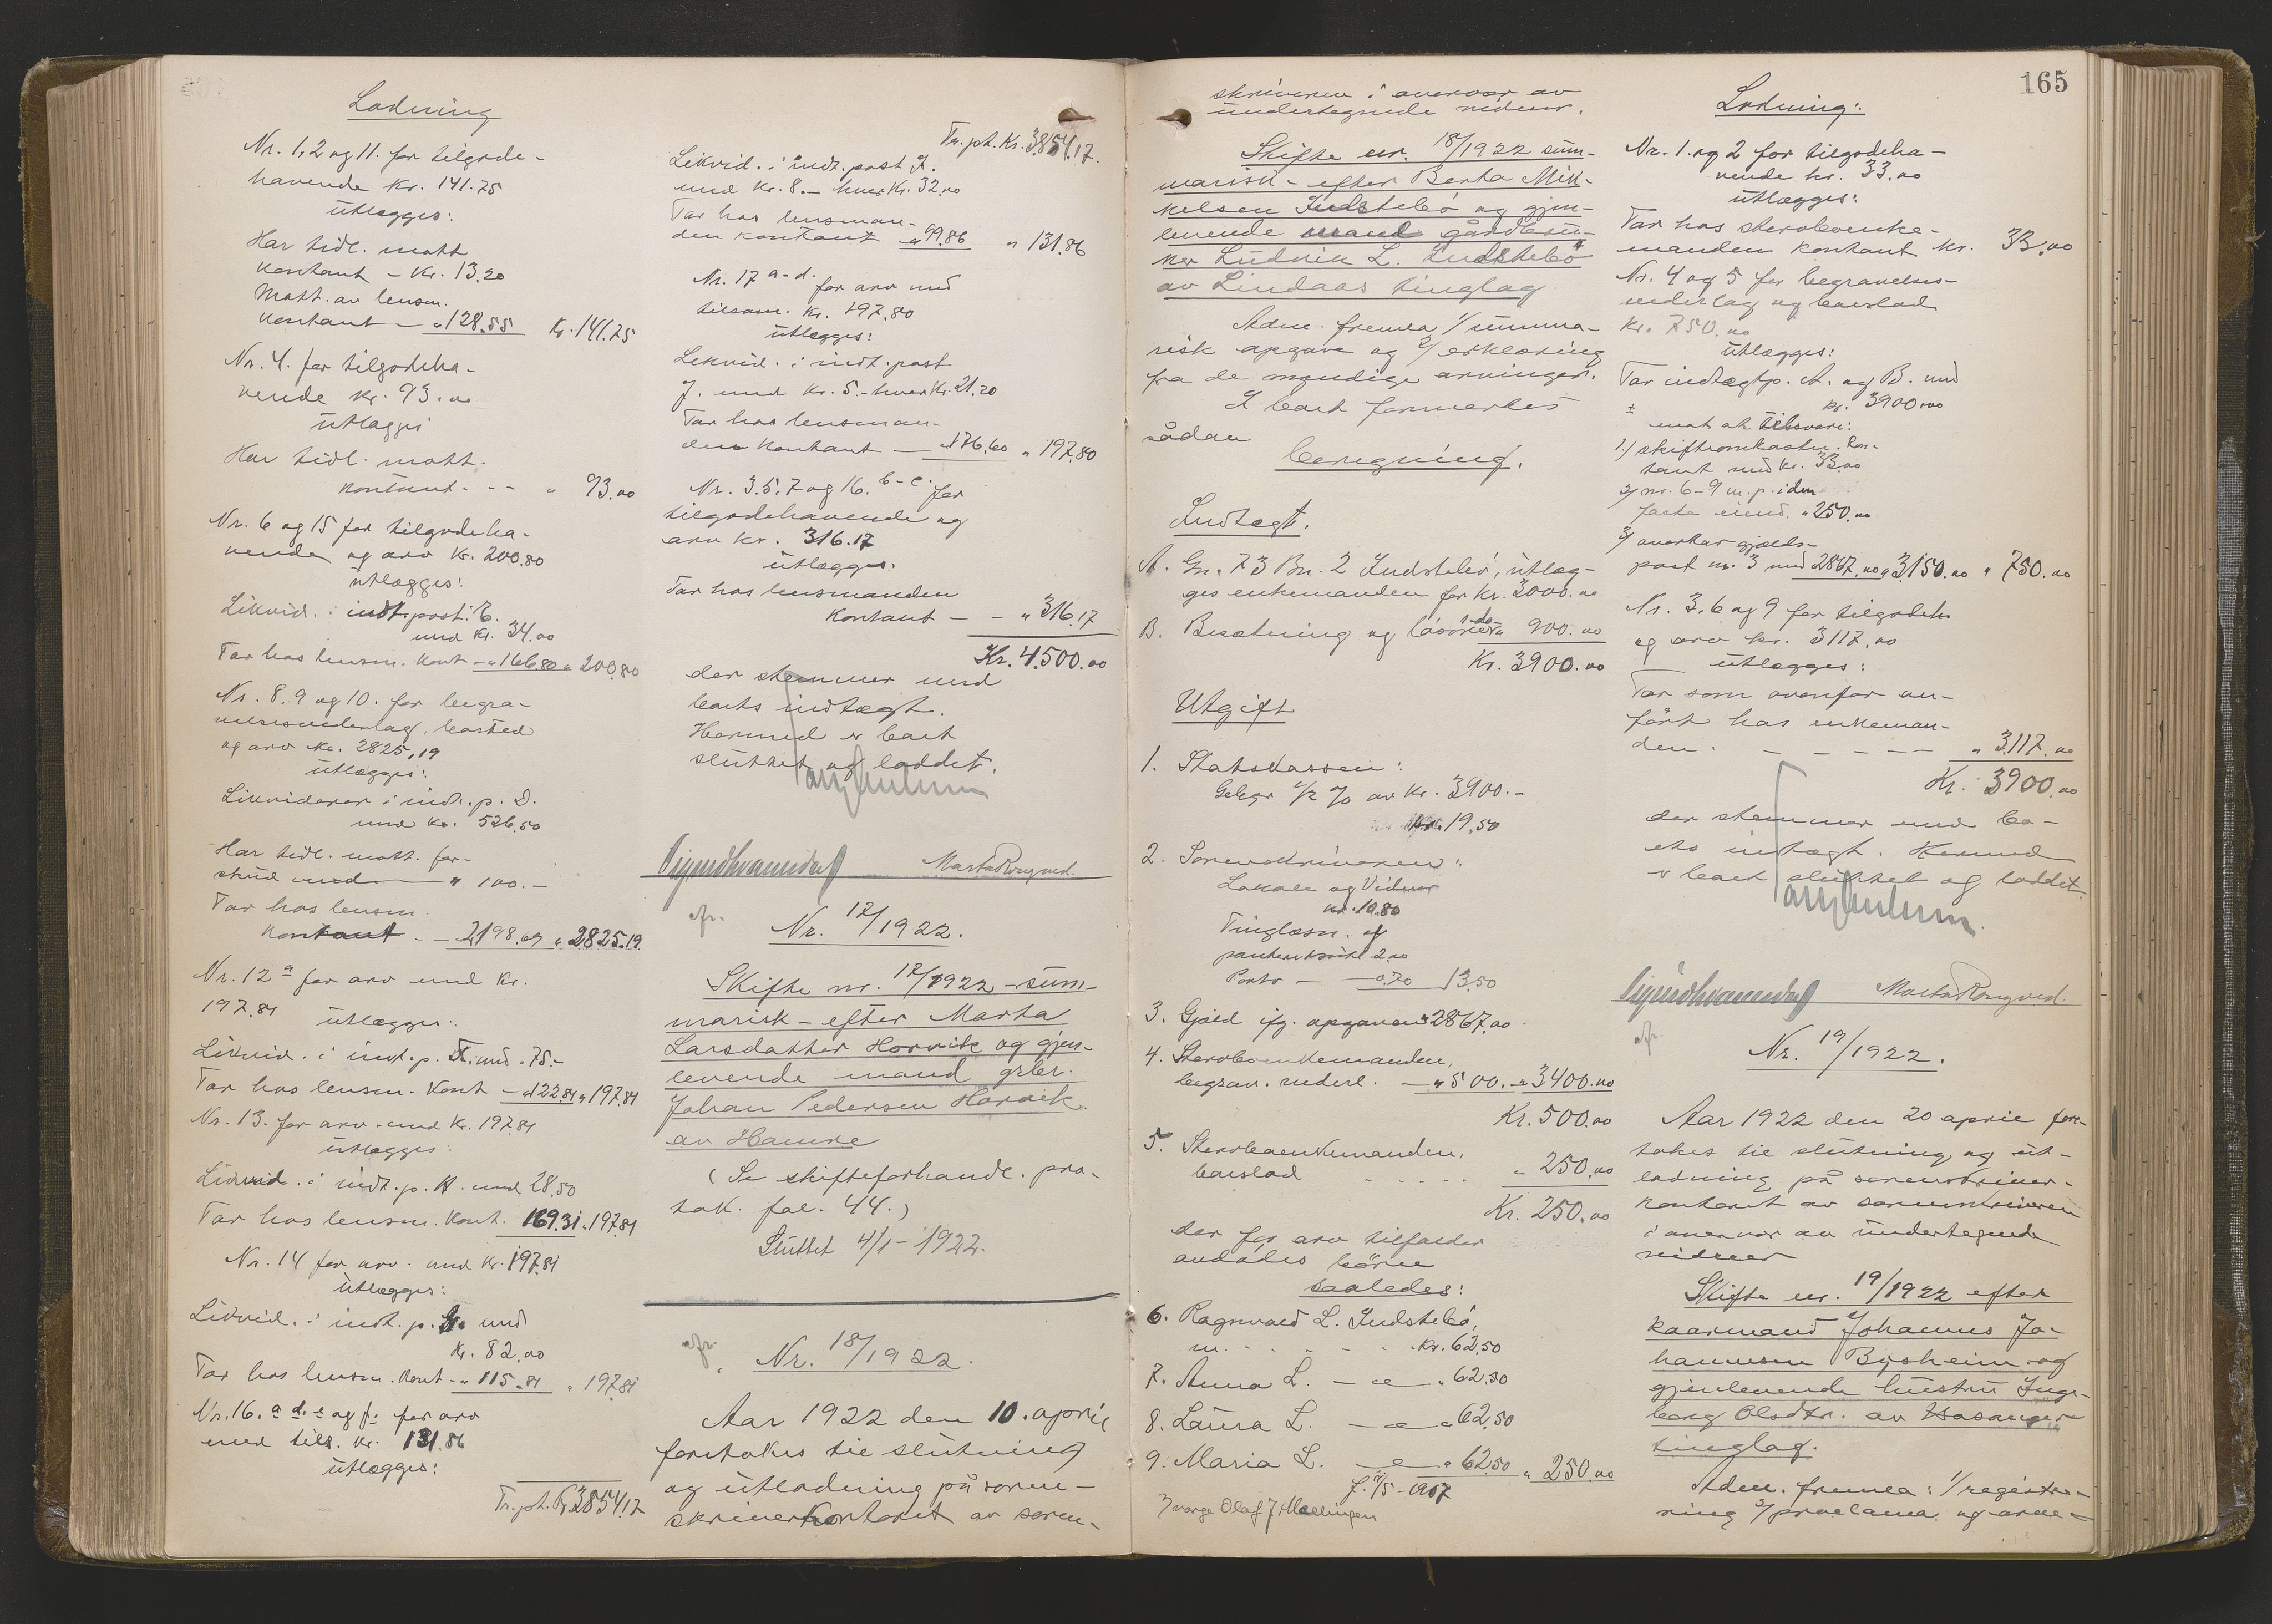 Lodning
Nr. 1, 2 og 11. for tilgode-
havende Kr. 141.75
utlægges:
Har tidl. mott
Kontant - Kr. 13.20
Mott. av lensm.
Kontant - " 128.55 Kr. 141.75
Nr. 4. for tilgodeha-
vende Kr. 93.00
utlægges
Har tidl. mott.
kontant - - " 93.00
Nr. 6 og 15 for tilgodeha-
vende og arv Kr. 200.80
utlægges:
Likvid. i indt. post. E.
med Kr. 34.00
Tar hos lensm. Kont - " 166.80 " 200.80
Nr. 8, 9 og 10. for begra-
velsesvederlag, boslod
og arv Kr. 2825,19
utlægges:
Likviderer i indt. p. D.
med Kr. 526.50
Har tidl. mott. for-
skud med " 100.-
Tar hos lensm.
Kontant - - " 2198.69 " 2825.19
Nr. 12 a for arv med Kr.
197.84 utlægges:
Likvid. i indt. p. F. med " 75.-
Tar hos lensm. Kont - " 122.84 " 197.84
Nr. 13. for arv - med Kr. 197.84
utlægges:
Likvid. i indt. p. H. med 28.50
Tar hos lensm. Kont. 169.31 " 197.84
Nr. 14 for arv. med Kr. 197.84
utlægges:
Likvid. i indt. p. G. med
Kr. 82.00
Tar hos lensm. Kont - " 115.84 " 197.84
Nr. 16. a d. e og f. for arv
med tils. Kr. 131.86
utlægges:
Tr. pt. Kr. 3854.17
Tr. pt. Kr. 3854.17.
Likvid. i indt. post I.
med Kr. 8.- hver Kr. 32.00
Tar hos lensman-
den kontant " 99.86 " 131.86
Nr. 17 a-d. for arv med
tilsam. Kr. 197.80
utlægges:
Likvid. i indt. post
J. med Kr. 5.- hver Kr. 21.20
Tar hos lensman-
den kontant - " 176.60 " 197.80
Nr. 3. 5. 7 og 16. b-c. for
tilgodehavende og
arv Kr. 316.17
utlægges.
Tar hos lensmanden
Kontant - - " 316.17
Kr. 4.500.00
der stemmer med
boets indtægt.
Hermed er boet
sluttet og loddet.
Sigurd Kvamsdal Marta Rongved.
Nr. 17/1922.
Skifte nr. 17/1922 - sum-
marisk - efter Marta
Larsdatter Horvik og gjen-
levende mand grbr.
Johan Pedersen Horvik
av Hamre
(Se skifteforhandl. pro-
tok. fol. 44.)
Sluttet 4/1 - 1922.
Nr. 18/1922.
Aar 1922 den 10. april
foretokes til slutning
og utlodning på soren-
skriverkontoret av soren-
165
skriveren i overvær av
undertegnede vidner.
Skifte nr. 18/1922 sum-
marisk - efter Berta Mik-
kelsen Indstebø og gjen-
levende mand gårdbru-
ker Ludvik L. Indstebø
av Lindaas tinglag
Adm. fremla 1/ summa-
risk opgave og 2/ erklæring
fra de myndige arvinger.
I boet formerkes
sådan
beregning.
Indtægt.
A. Gn. 73 Bn. 2 Indstebø, utlæg-
ges enkemanden for Kr. 3000.00
B. Besætning og løsøre - do " 900.00
Kr. 3900.00
Utgift
1. Statskassen:
Gebyr 1/2 % av Kr. 3900.-
Kr. 19.50
2. Sorenskriveren:
Lokale og Vidner
Kr. 10.80
Tinglæsn. af
2.00
Porto - 0.70 13.50
3. Gjæld ifg. opgaven " 2867.00
4. Stervboenkemanden,
begrav. vederl. - " 500.- " 3400.00
Kr. 500.00
5. Stervboenkemanden,
boslod - - - - - " 250.00
Kr. 250.00
der for arv tilfalder
avdødes børn
saaledes:
6. Ragnvald L. Indstebø,
m. - - - - - Kr. 62.50
7. Anna L. - " - " 62.50
8. Laura L. - " - " 62.50
9. Maria L. - " - " 62.50 " 250.00
f. 7/5 - 1907
verge Olaf J. Mellingen
Lodning:
Nr. 1. og 2 for tilgodeha-
vende kr. 33.00
utlægges:
Tar hos stervboenke-
manden kontant Kr. 33.00
Nr. 4 og 5 for begravelses-
vederlag og boslod
Kr. 750.00
utlægges:
Tar indtægtp. A. og B. med
Kr. 3900.00
mot at tilsvare:
1/ skifteomkostn. Kon-
tant med kr. 33.00
2/ nr. 6-9 m. p. i den
faste eiend. " 250.00
3/ overtar gjælds-
post nr. 3 med 2867.00 " 3150.00 " 750.00
Nr. 3. 6 og 9 for tilgodeh.
og arv kr. 3117.00
utlægges:
Tar som ovenfor an-
ført hos enkeman-
den. - - - - - " 3117.00
Kr. 3900.00
der stemmer med bo-
ets indtægt. Hermed
er boet sluttet og loddet.
Sigurd Kvamsdal Marta Rongved.
Nr. 19/1922.
Aar 1922 den 20 april fore-
tokes til slutning og ut-
lodning på sorenskriver-
kontoret av sorenskriveren
i overvær av undertegnede
vidner
Skifte nr. 19/1922 efter
kaarmand Johannes Jo-
hannesen Bysheim og
gjenlevende hustru Inge-
borg Olsdtr. av Hosanger
tinglag.
Adm. fremla: 1/ registre-
ring 2/ proclama og